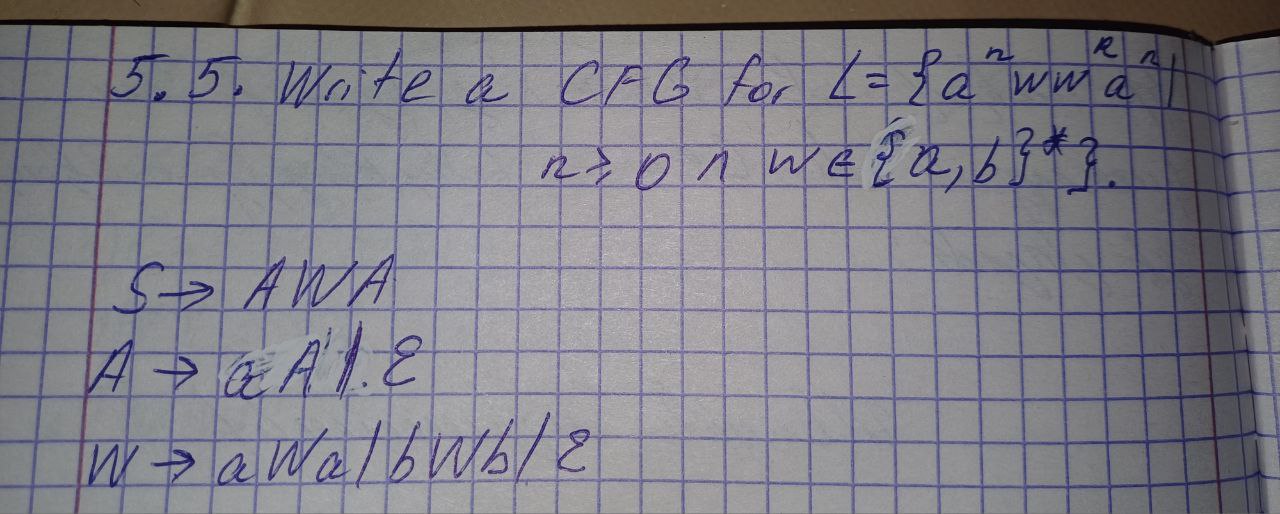 5.5. Write a CFG for L={aⁿwwᴿaⁿ|
n≥0 ∧ w∈{a,b}*}.
S→AWA
A→aA|.ε
W→aWa|bWb|ε